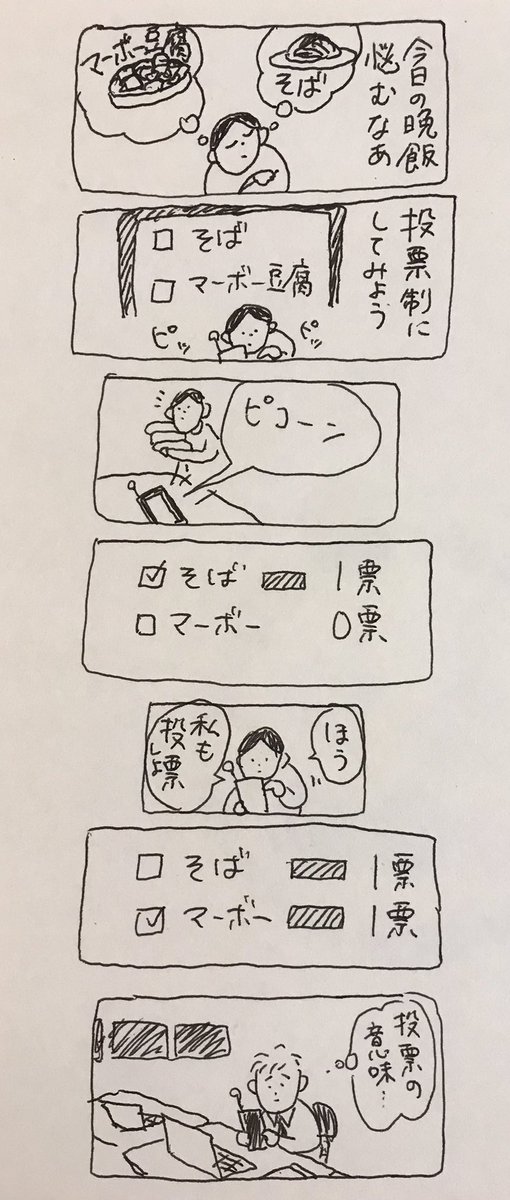 今日の晩飯
悩むなあ
マーボー豆腐
そば
投票制に
してみよう
そば
マーボー豆腐
ピッ
ピッ
ピコーン
そば 1票
マーボー 0票
ほう
私も
投票
しよ
そば 1票
マーボー 1票
投票の
意味…